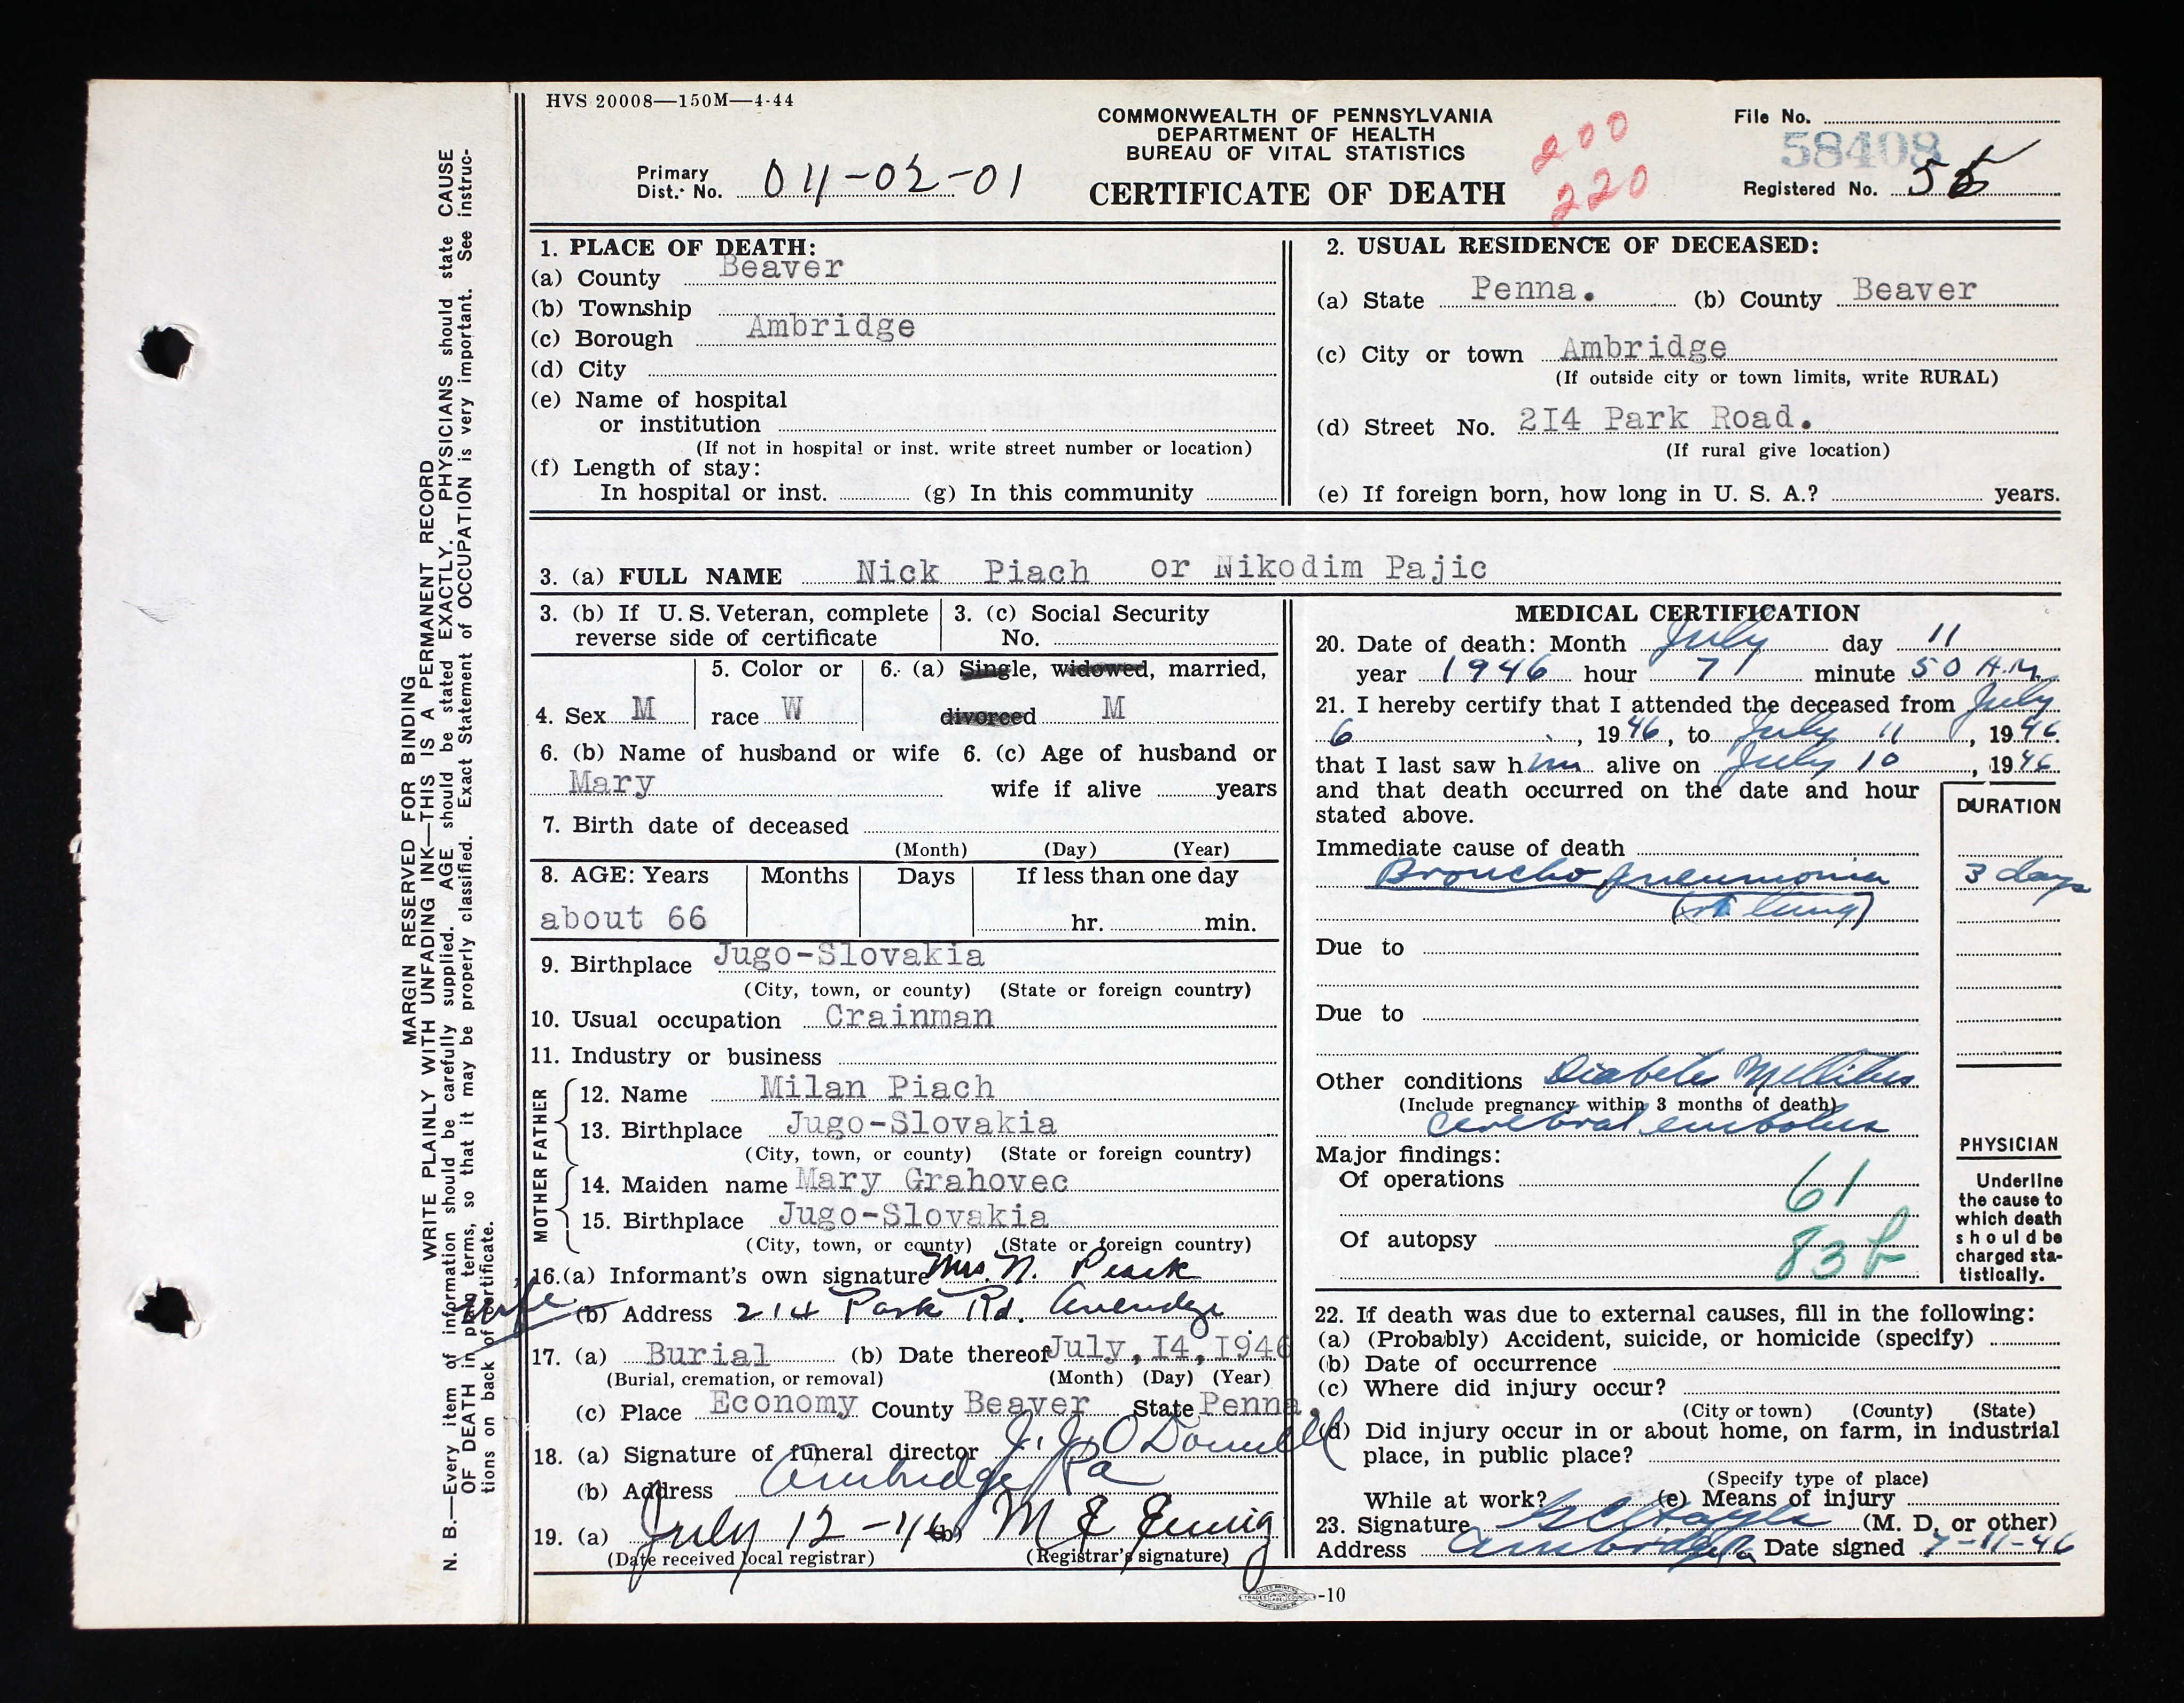 HVS 20008—150M—4-44
COMMONWEALTH OF PENNSYLVANIA
DEPARTMENT OF HEALTH
BUREAU OF VITAL STATISTICS
CERTIFICATE OF DEATH
Primary
Dist. No. 04-02-01
200
220
File No.
58408
Registered No.
MARGIN RESERVED FOR BINDING
WRITE PLAINLY WITH UNFADING INK—THIS IS A PERMANENT RECORD
N. B.—Every item of information should be carefully supplied. AGE should be stated EXACTLY. PHYSICIANS should state CAUSE
OF DEATH in plain terms, so that it may be properly classified. Exact Statement of OCCUPATION is very important. See instruc-
tions on back of certificate.
1. PLACE OF DEATH:
(a) County Beaver
(b) Township
(c) Borough Ambridge
(d) City
(e) Name of hospital
or institution
(If not in hospital or inst. write street number or location)
(f) Length of stay:
In hospital or inst. (g) In this community
2. USUAL RESIDENCE OF DECEASED:
(a) State Penna. (b) County Beaver
(c) City or town Ambridge
(If outside city or town limits, write RURAL)
(d) Street No. 2I4 Park Road.
(If rural give location)
(e) If foreign born, how long in U. S. A.? years.
3. (a) FULL NAME Nick Piach or Nikodim Pajic
3. (b) If U. S. Veteran, complete
reverse side of certificate
3. (c) Social Security
No.
4. Sex M
5. Color or
race W
6. (a) Single, widowed, married,
divorced M
6. (b) Name of husband or wife
Mary
6. (c) Age of husband or
wife if alive years
7. Birth date of deceased
(Month) (Day) (Year)
8. AGE: Years Months Days If less than one day
about 66 hr. min.
9. Birthplace Jugo-Slovakia
(City, town, or county) (State or foreign country)
10. Usual occupation Crainman
11. Industry or business
FATHER
12. Name Milan Piach
13. Birthplace Jugo-Slovakia
(City, town, or county) (State or foreign country)
MOTHER
14. Maiden name Mary Grahovec
15. Birthplace Jugo-Slovakia
(City, town, or county) (State or foreign country)
16.(a) Informant's own signature Mrs. N. Piach
wife
(b) Address 214 Park Rd. Ambridge
17. (a) Burial (b) Date thereof July, I4, I946
(Burial, cremation, or removal) (Month) (Day) (Year)
(c) Place Economy County Beaver State Penna.
18. (a) Signature of funeral director J. J. O'Donnell
(b) Address Ambridge Pa
19. (a) July 12-46 (b) M E
(Date received local registrar) (Registrar's signature)
MEDICAL CERTIFICATION
20. Date of death: Month July day 11
year 1946 hour 7 minute 50 A.M.
21. I hereby certify that I attended the deceased from July
6, 1946, to July 11, 1946
that I last saw him alive on July 10, 1946
and that death occurred on the date and hour
stated above.
DURATION
Immediate cause of death
Broncho pneumonia 3 days
(rt lung)
Due to
Due to
Other conditions Diabetes Mellitus
(Include pregnancy within 3 months of death)
cerebral embolus
Major findings:
Of operations
61
Of autopsy
83b
PHYSICIAN
Underline
the cause to
which death
should be
charged sta-
tistically.
22. If death was due to external causes, fill in the following:
(a) (Probably) Accident, suicide, or homicide (specify)
(b) Date of occurrence
(c) Where did injury occur?
(City or town) (County) (State)
(d) Did injury occur in or about home, on farm, in industrial
place, in public place?
(Specify type of place)
While at work? (e) Means of injury
23. Signature (M. D. or other)
Address Ambridge Pa Date signed 7-11-46
-10